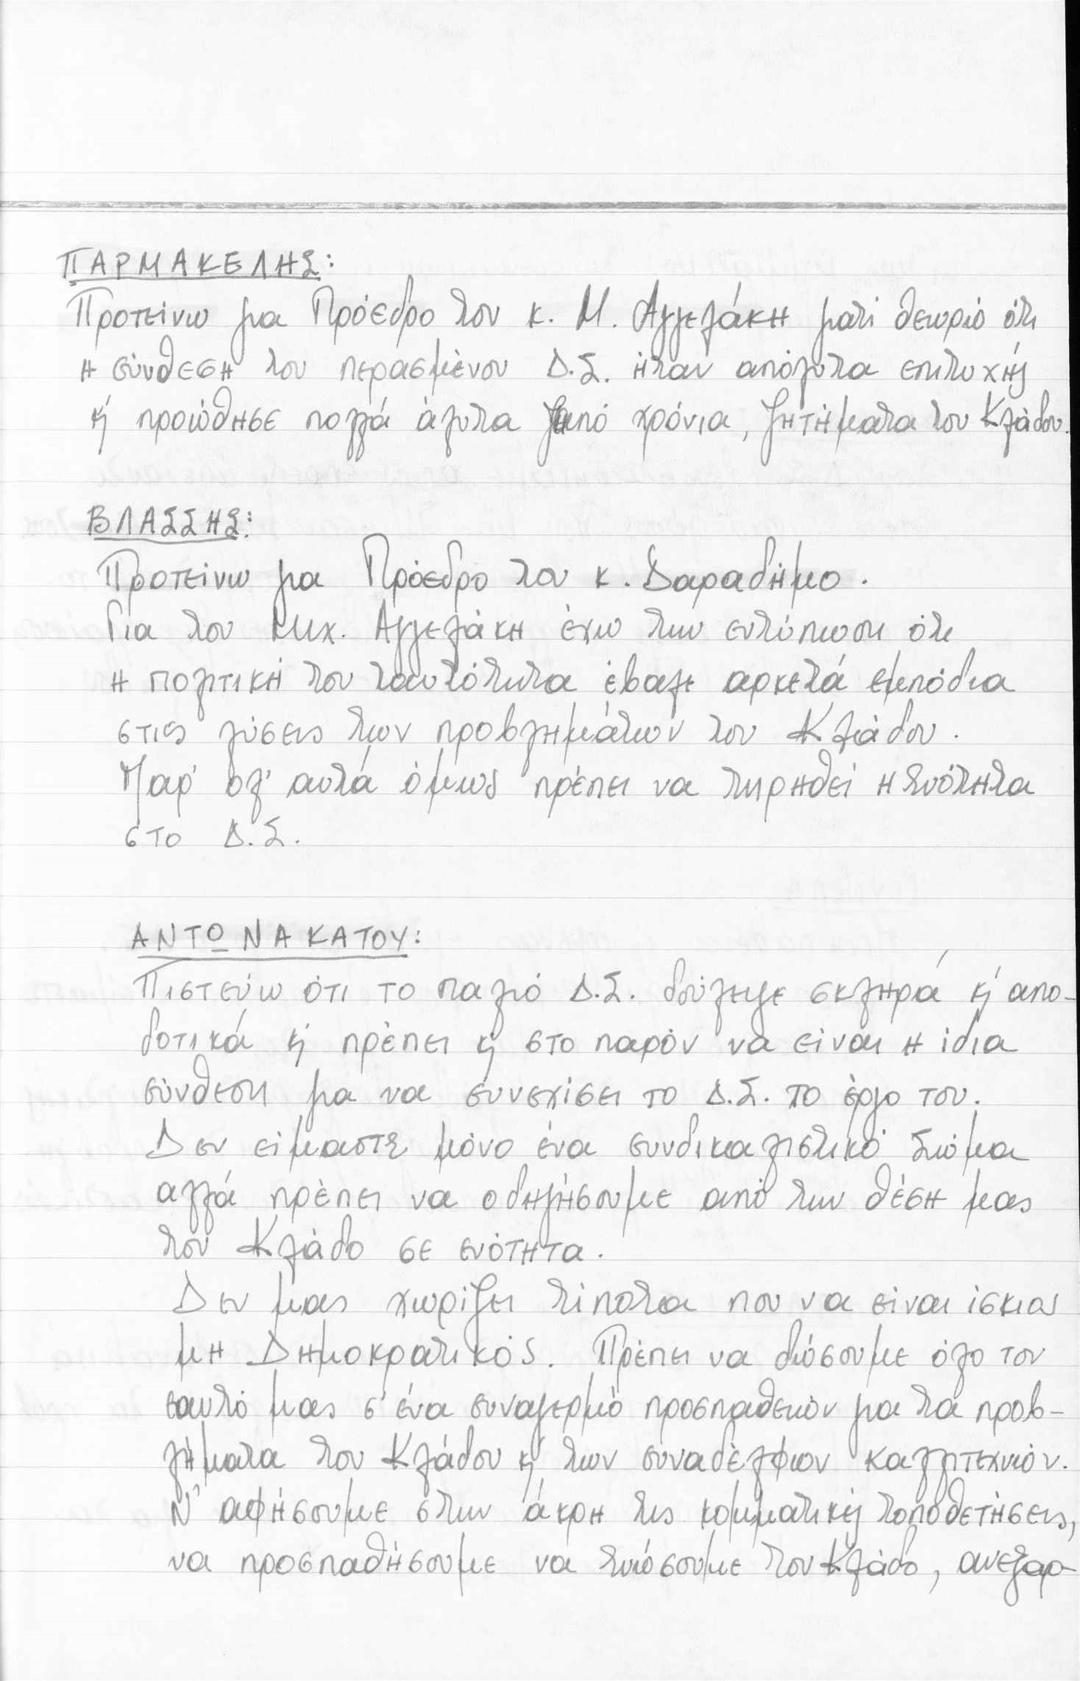 ΠΑΡΜΑΚΕΛΗΣ:
Προτείνω για Πρόεδρο τον κ. Μ. Αγγελάκη γιατί θεωρώ ότι
η σύνθεση του περασμένου Δ.Σ. ήταν απόλυτα επιτυχής
κ' προώθησε πολλά άλυτα από χρόνια, ζητήματα του Κλάδου.
ΒΛΑΣΣΗΣ:
Προτείνω για Πρόεδρο τον κ. Δαραδήμο.
Για τον Μιχ. Αγγελάκη έχω την εντύπωση ότι
η πολιτική του ταυτότητα έβαλε αρκετά εμπόδια
στις λύσεις των προβλημάτων του Κλάδου.
Παρ' ολ' αυτά όμως πρέπει να τηρηθεί η ενότητα
στο Δ.Σ.
ΑΝΤΩΝΑΚΑΤΟΥ:
Πιστεύω ότι το παλιό Δ.Σ. δούλεψε σκληρά κ' απο-
δοτικά κ' πρέπει κ' στο παρόν να είναι η ίδια
σύνθεση για να συνεχίσει το Δ.Σ. το έργο του.
Δεν είμαστε μόνο ένα συνδικαλιστικό Σώμα
αλλά πρέπει να οδηγήσουμε από την θέση μας
τον Κλάδο σε ενότητα.
Δεν μας χωρίζει τίποτα που να είναι ίσκιος
μη Δημοκρατικός. Πρέπει να δώσουμε όλο τον
εαυτό μας σ' ένα συναγερμό προσπαθειών για τα προβ-
λήματα του Κλάδου κ' των συναδέλφων καλλιτεχνών.
Ν' αφήσουμε στην άκρη τις κομματικές τοποθετήσεις,
να προσπαθήσουμε να ενώσουμε τον Κλάδο, ανεξαρ-